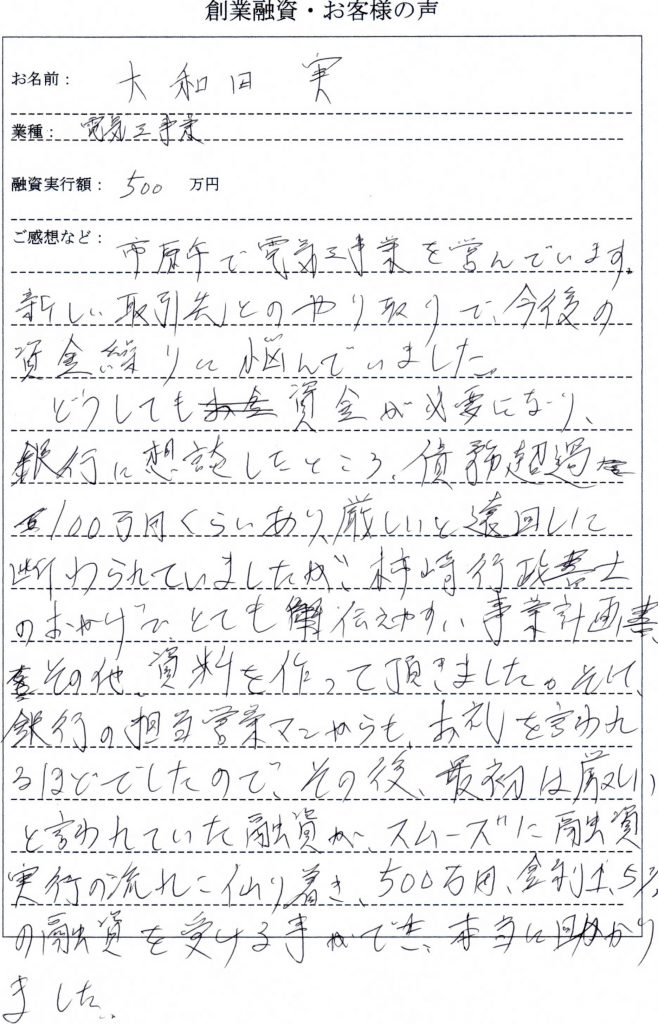 創業融資・お客様の声
お名前： 大和田 実
業種： 電気工事業
融資実行額： 500 万円
ご感想など： 市原市で電気工事業を営んでいます。
新しい取引先とのやり取りで、今後の
資金繰りに悩んでいました。
どうしてもお金資金が必要になり、
銀行に想談したところ、債務超過
100万円くらいあり、厳しいと遠回しに
断わられていましたが、柿崎行政書士
のおかげで、とても伝えやすい事業計画書、
その他、資料を作って頂きました。そして、
銀行の担当営業マンからも、お礼を言われ
るほどでしたので、その後、最初は厳しい
と言われていた融資が、スムーズに融資
実行の流れに辿り着き、500万円、金利1.5%
の融資を受ける事ができ、本当に助かり
ました。